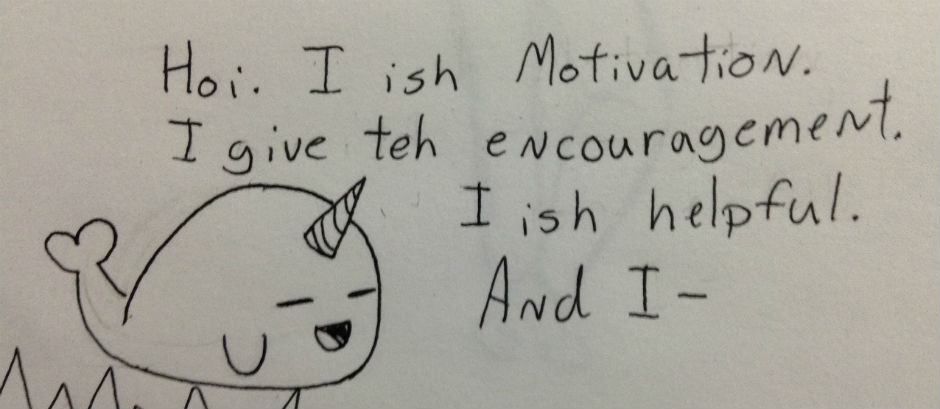 Hoi. I ish Motivation.
I give teh encouragement.
I ish helpful.
And I-